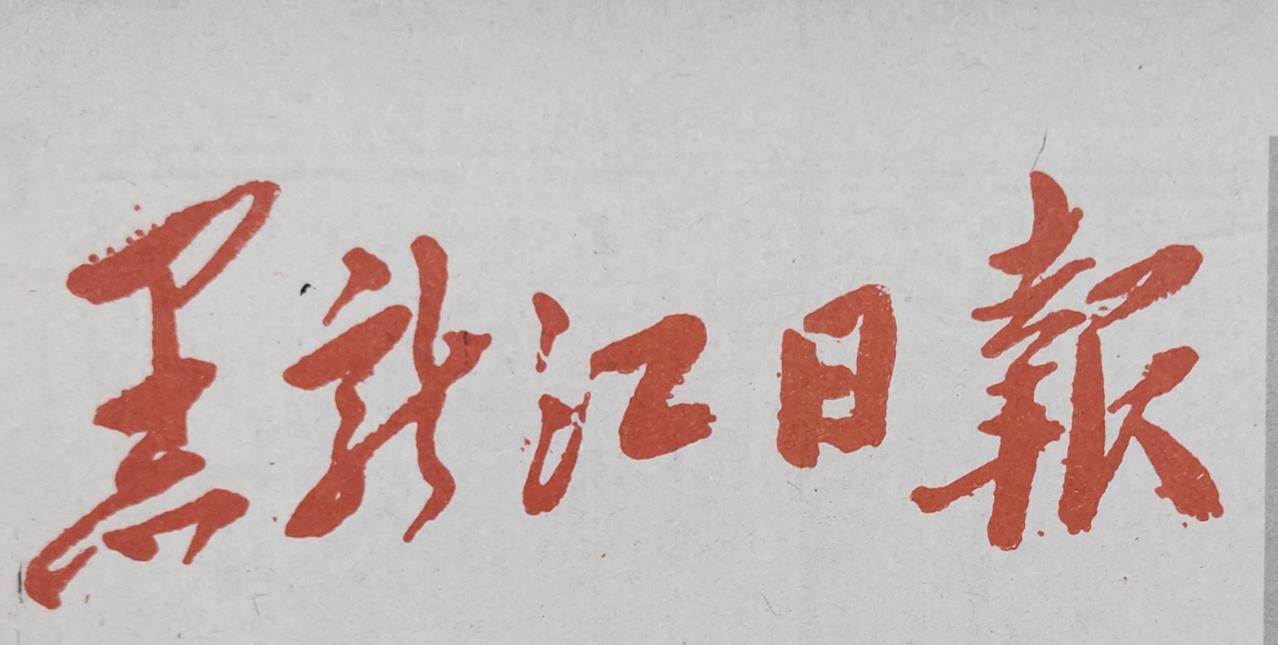 黑龍江日報